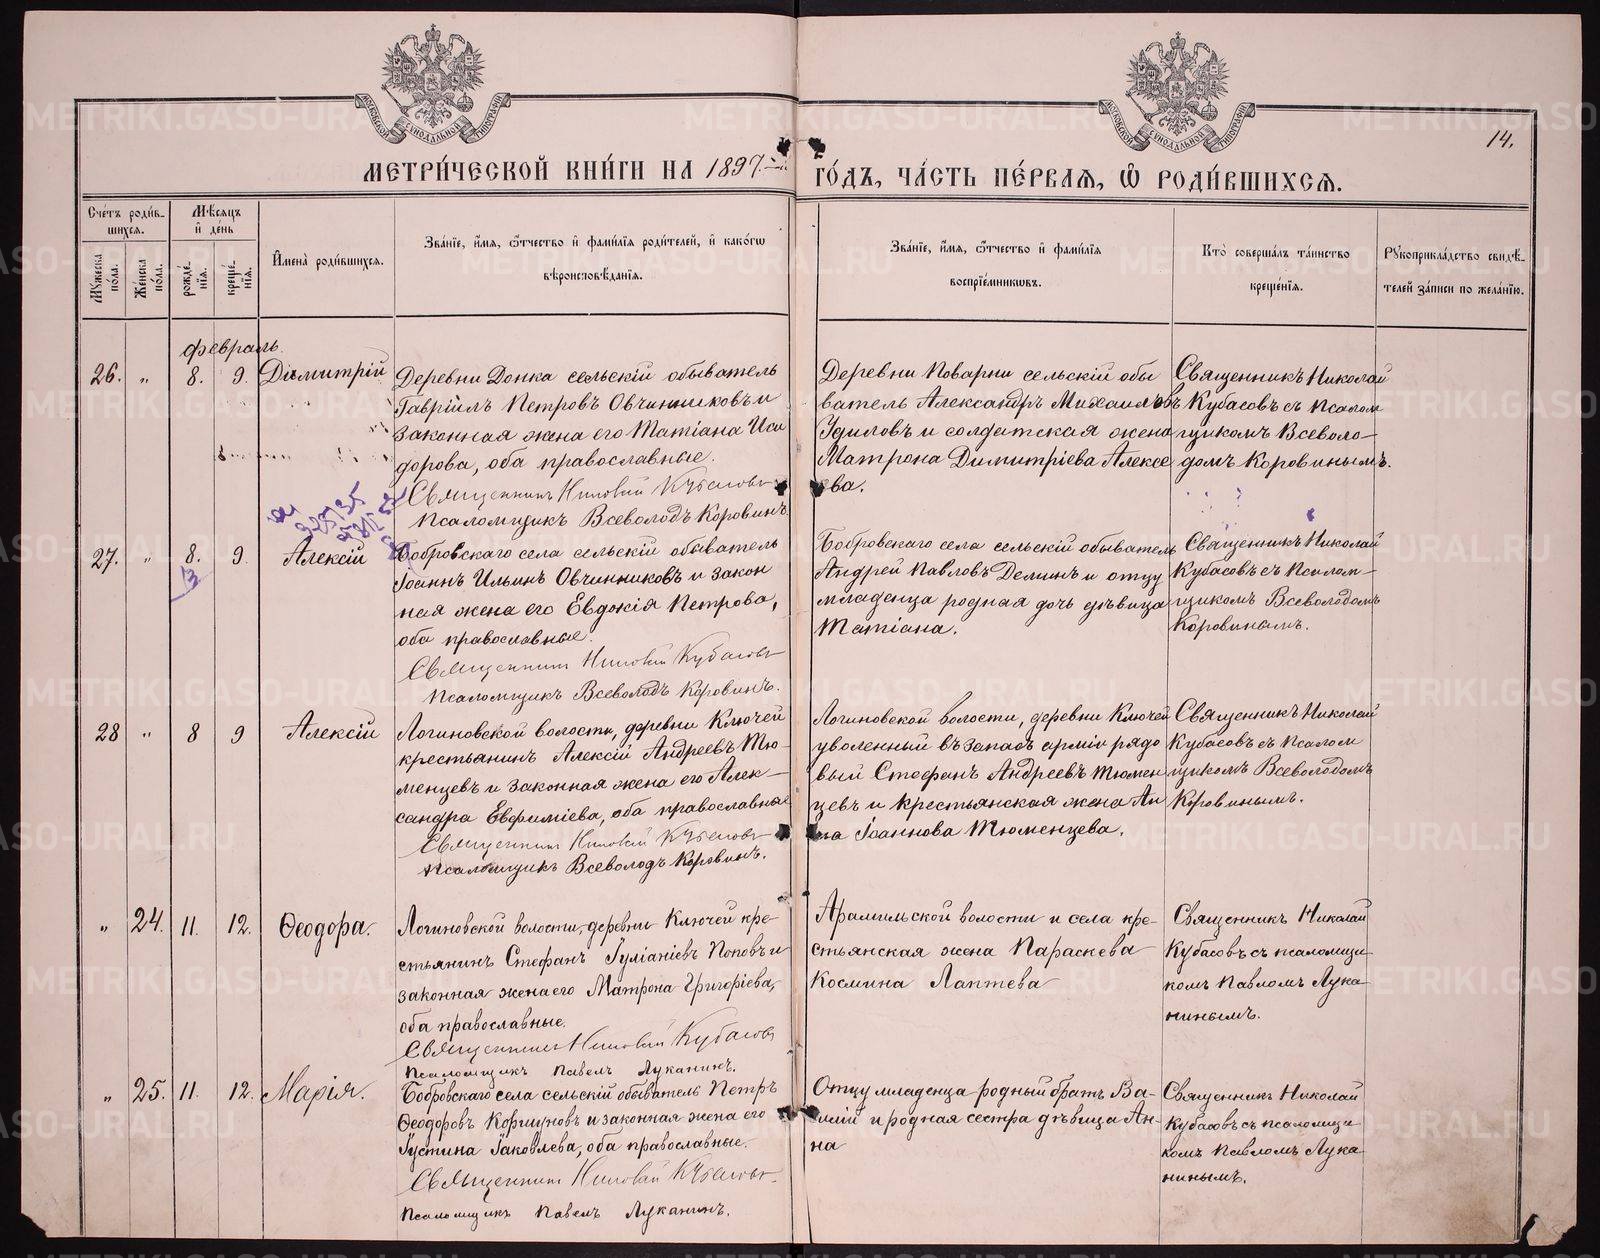 МОСКОВСКОЙ СѴНОДАЛЬНОЙ ТИПОГРАФІИ
МОСКОВСКОЙ СѴНОДАЛЬНОЙ ТИПОГРАФІИ
14.
МЕТРИ́ЧЕСКОЙ КНИ́ГИ НА 1897 ГО́ДЪ, ЧА́СТЬ ПЕ́РВАЯ, Ѽ РОДИ́ВШИХСЯ.
Сче́тъ роди́в-
шихся.
Мѣ́сяцъ
и де́нь
Мꙋ́жеска по́ла.
Же́нска по́ла.
рожде́нїя.
креще́нїя.
Имена̀ роди́вшихся.
Зва́нїе, и́мя, ѻ҆́тчество и фами́лїя роди́телей, и како́гѡ
вѣроисповѣ́данїя.
Зва́нїе, и́мя, ѻ҆́тчество и фами́лїя
воспрїе́мникѡвъ.
Кто̀ соверша́лъ та́инство
креще́нїя.
Рꙋкоприкла́дство свидѣ́-
телей за́писи по жела́нїю.
февраль.
26. „ 8. 9. Димитрій
Деревни Донка сельскій обыватель
Гавріилъ Петровъ Овчинниковъ и
законная жена его Татіана Иси
дорова, оба православные.
Священникъ Николай Кубасовъ
Псаломщикъ Всеволодъ Коровинъ
Деревни Поварни сельскій обы
ватель Александръ Михаиловъ
Удиловъ и солдатская жена
Матрона Димитріева Алексе
ева.
Священникъ Николай
Кубасовъ съ псалом
щикомъ Всеволо-
домъ Коровинымъ.
27. „ 8. 9. Алексій
13
Бобровскаго села сельскій обыватель
Іоаннъ Ильинъ Овчинниковъ и закон
ная жена его Евдокія Петрова,
оба православные.
Священникъ Николай Кубасовъ
Псаломщикъ Всеволодъ Коровинъ.
Бобровскаго села сельскій обыватель
Андрей Павловъ Деминъ и отцу
младенца родная дочь дѣвица
Татіана.
Священникъ Николай
Кубасовъ съ псалом-
щикомъ Всеволодомъ
Коровинымъ.
28 „ 8 9 Алексій
Логиновской волости, деревни Ключей
крестьянинъ Алексій Андреевъ Тю-
менцевъ и законная жена его Алек-
сандра Евфиміева, оба православные
Священникъ Николай Кубасовъ
Псаломщикъ Всеволодъ Коровинъ.
Логиновской волости, деревни Ключей
уволенный въ запасъ арміи рядо
вый Стефанъ Андреевъ Тюмен
цевъ и крестьянская жена Ан
на Іоаннова Тюменцева.
Священникъ Николай
Кубасовъ съ псалом
щикомъ Всеволодомъ
Коровинымъ.
„ 24. 11. 12. Ѳеодора.
Логиновской волости, деревни Ключей кре-
стьянинъ Стефанъ Іуліаніевъ Поповъ и
законная жена его Матрона Григоріева,
оба православные.
Священникъ Николай Кубасовъ
Псаломщикъ Павелъ Луканинъ.
Арамильской волости и села кре-
стьянская жена Параскева
Космина Лаптева
Священникъ Николай
Кубасовъ съ псаломщи-
комъ Павломъ Лука-
нинымъ.
„ 25. 11. 12. Марія.
Бобровскаго села сельскій обыватель Петръ
Ѳеодоровъ Коршуновъ и законная жена его
Іустина Іаковлева, оба православные.
Священникъ Николай Кубасовъ
Псаломщикъ Павелъ Луканинъ.
Отцу младенца родный братъ Ва-
силій и родная сестра дѣвица Ан-
на
Священникъ Николай
Кубасовъ съ псаломщи-
комъ Павломъ Лука-
нинымъ.
METRIKI.GASO-URAL.RU